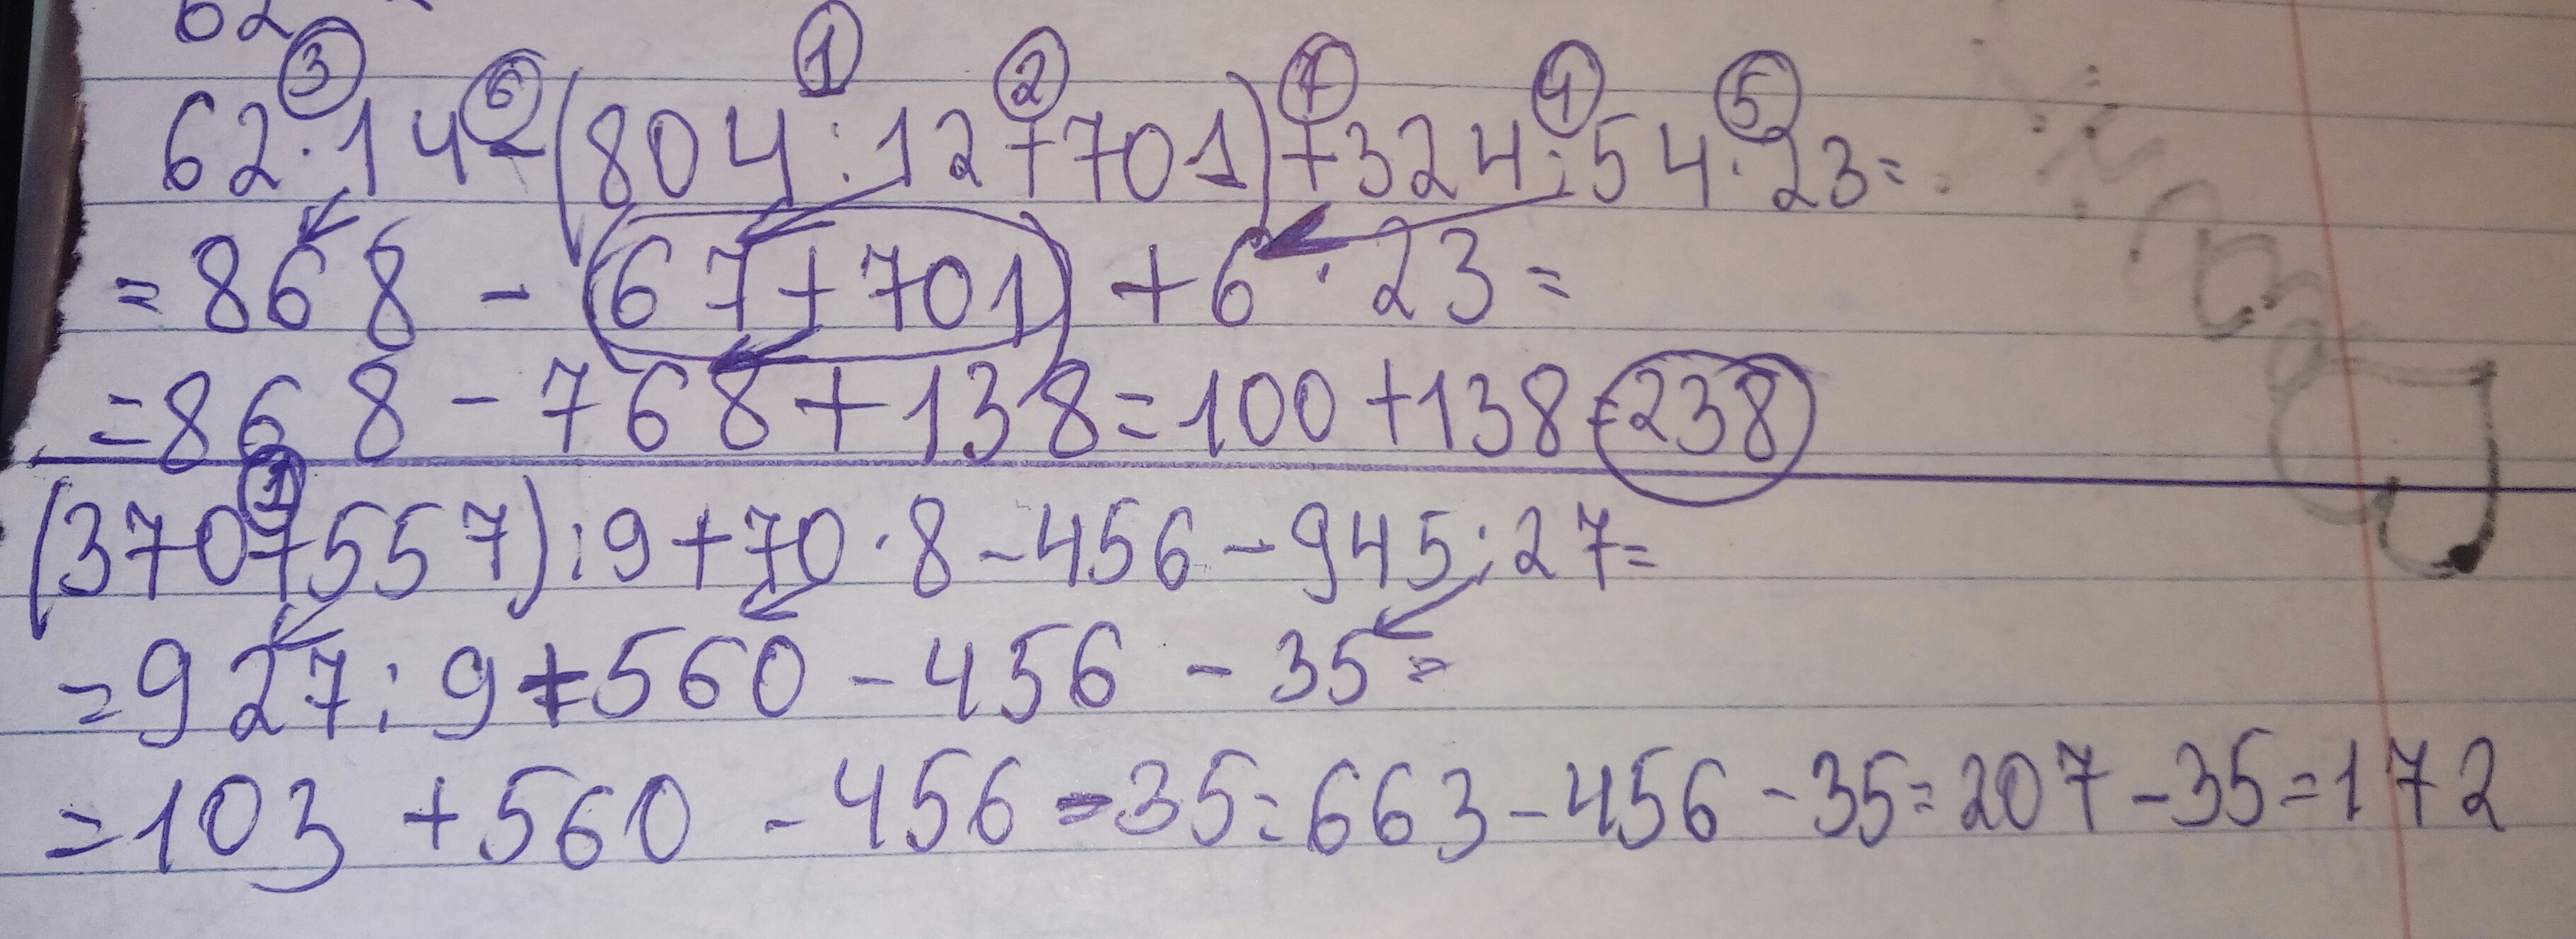 62
3 6 1 2 7 4 5
62·14-(804:12+701)+324:54·23=
=868-(67+701)+6·23=
=868-768+138=100+138=238
1
(370+557):9+70·8-456-945:27=
=927:9+560-456-35=
=103+560-456-35=663-456-35=207-35=172